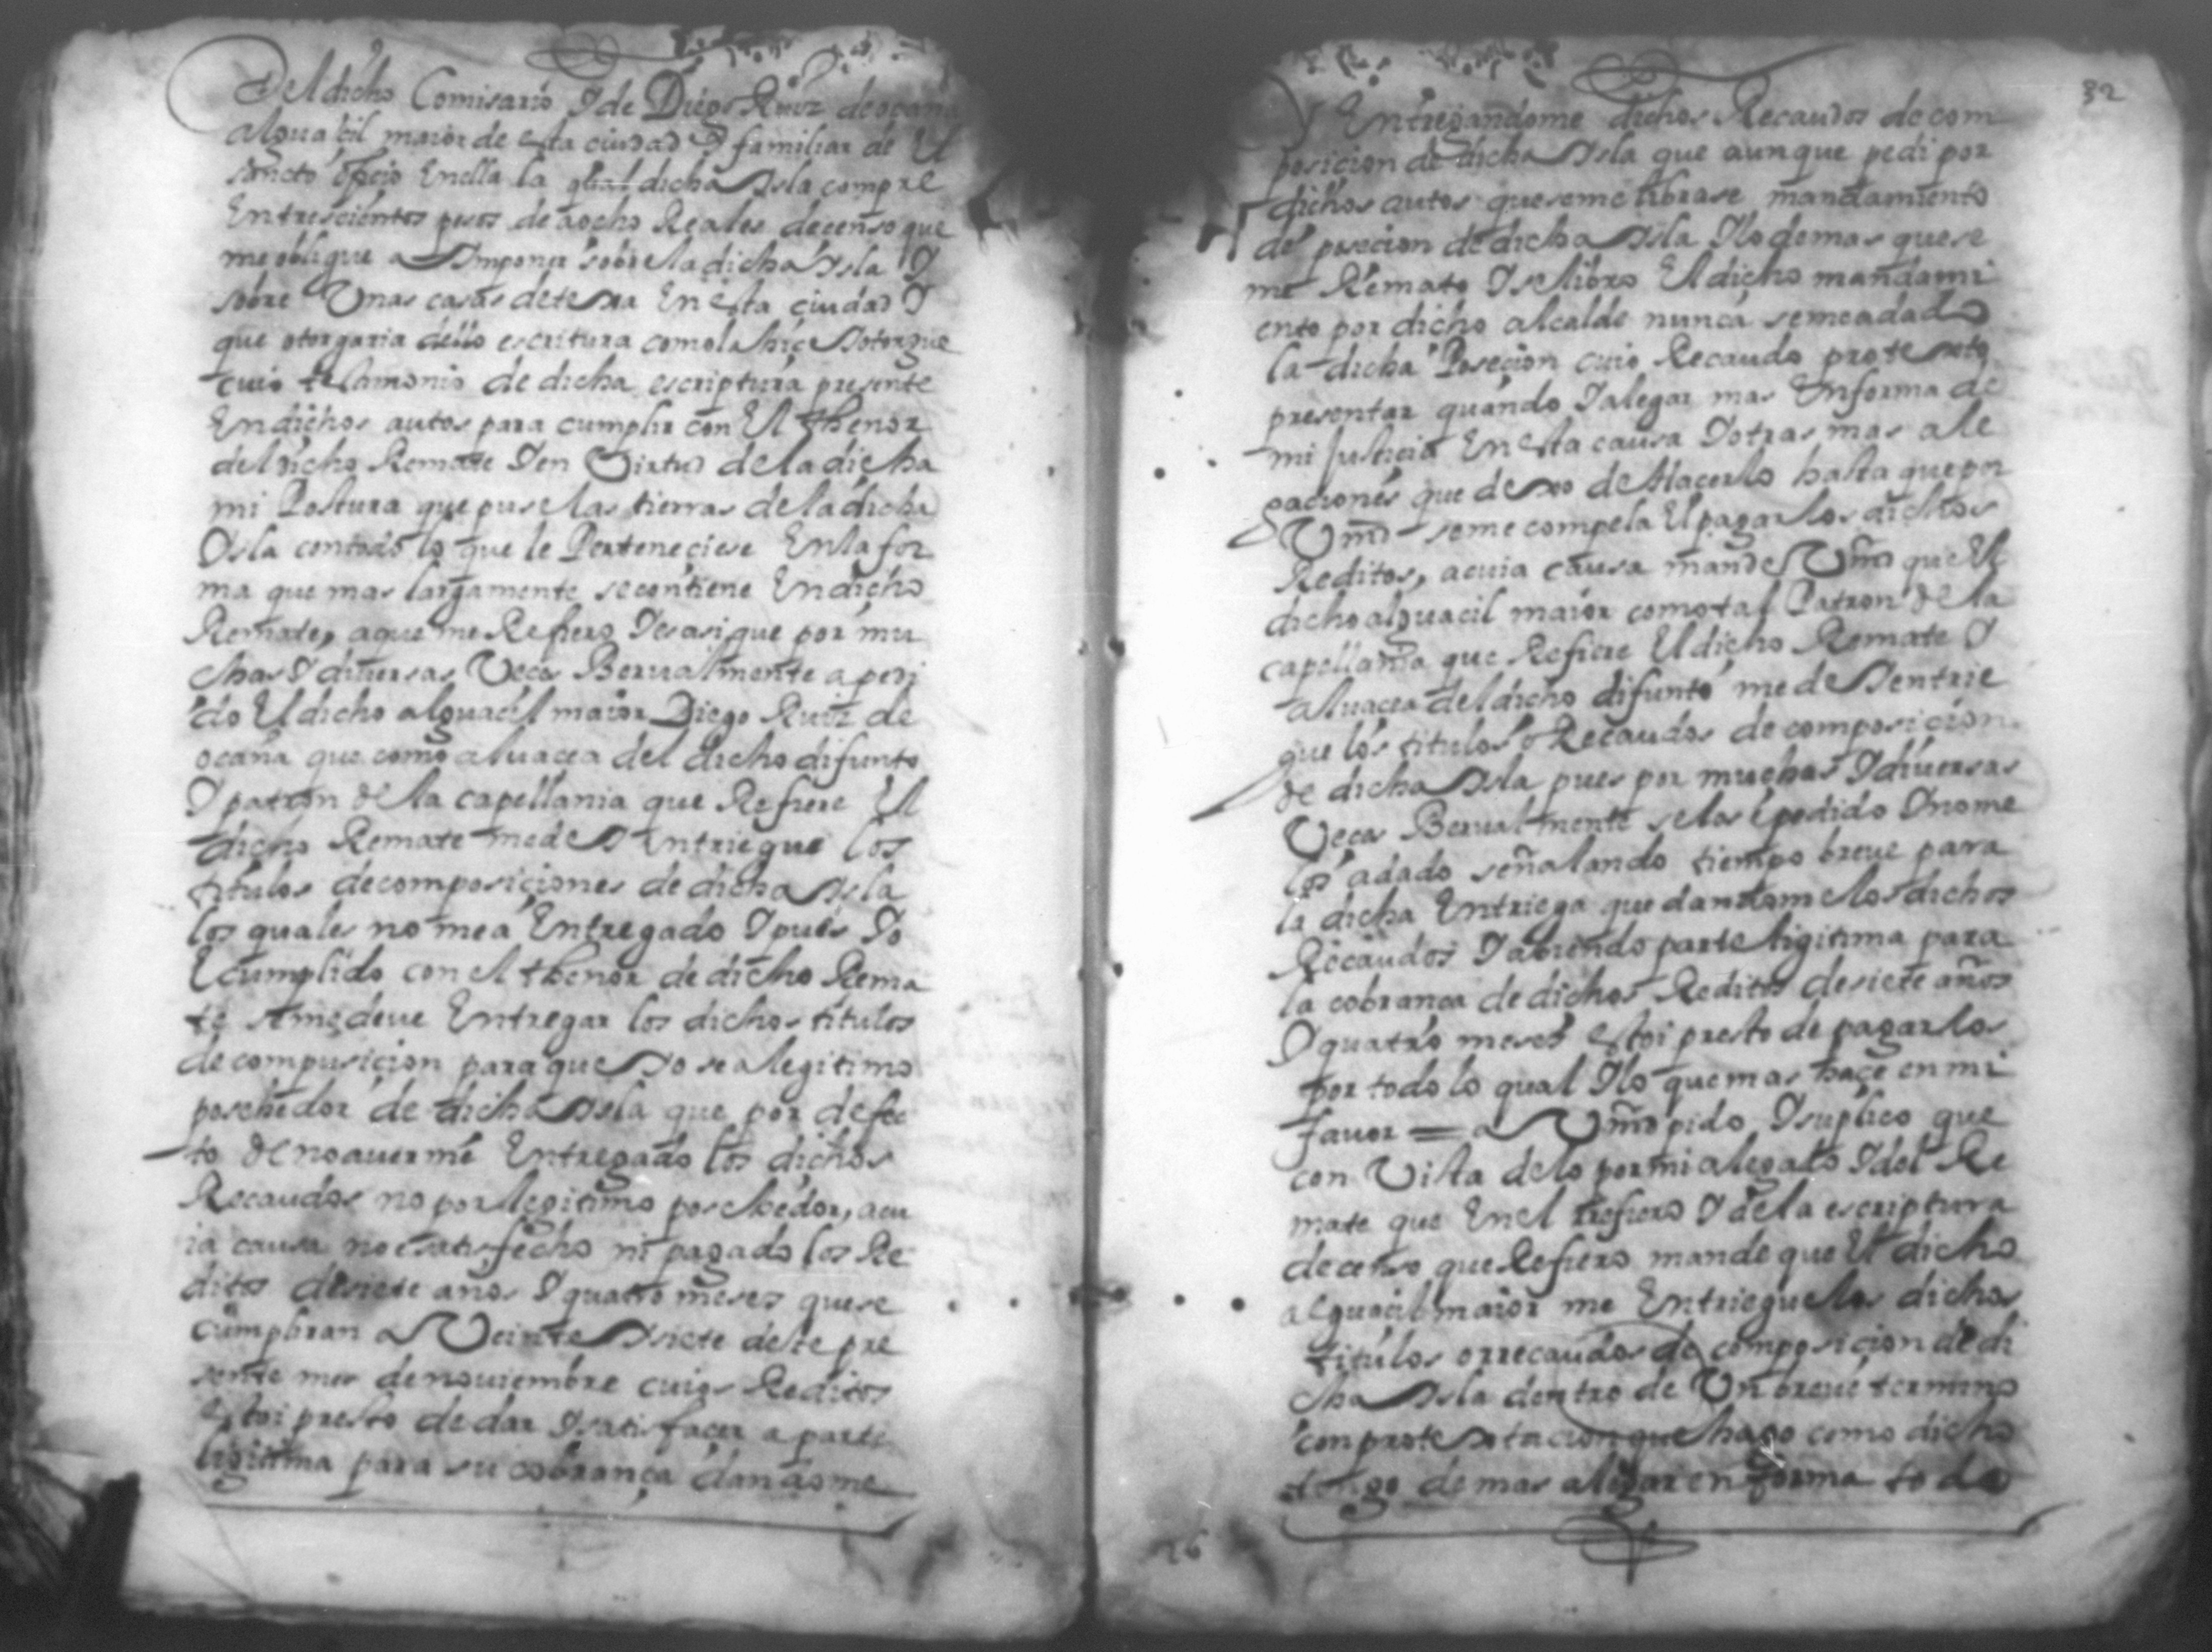 Del dicho Comisario Y de Diego Ruiz de ocaña
alguacil maior de esta ciudad Y familiar de El
sancto ofiçio En ella la qual dicha Ysla compre
En trescientos pesos de a ocho Reales de censo que
me obligue a Ymponer sobre la dicha Ysla Y
sobre Unas casas de texa En esta ciudad Y
que otorgaria dello escritura como la hiçe Y otorgue
cuio testamonio de dicha escriptura presente
En dichos autos para cumplir con El thenor
del dicho Remate Y en Virtud de la dicha
mi Postura que puse las tierras de la dicha
Ysla con todo lo que le Perteneçiese En la for
ma que mas largamente se contiene En dicho
Remate, a que me Refiero Y es asi que por mu
chas Y diuersas Veces Berualmente a pedi
do El dicho alguacil maior Diego Ruiz de
ocaña que como aluacea del dicho difunto
Y patron de la capellania que Refiere El
dicho Remate me de Y Entriegue los
titulos de composiçiones de dicha Ysla
los quales no me a Entregado Y pues Yo
E cumplido con el thenor de dicho Rema
te se me deue Entregar los dichos titulos
de compusicion para que Yo sea legitimo
posehedor de dicha Ysla que por defec
to de no auerme Entregado los dichos
Recaudos no por legitimo posehedor, acu
ia causa no e satisfecho ni pagado los Re
ditos de siete años Y quatro meses que se
cumpliran a Veinte Y siete deste pre
sente mes de nouiembre cuios Reditos
estoi presto de dar Y satisfacer a parte
ligitima para su cobrança dandome
32
Y Entregandome dichos Recaudos de com
posicion de dicha Ysla que aunque pedi por
dichos autos que se me librase mandamiento
de posecion de dicha Ysla Y lo demas que se
me Remato Y se libro El dicho mandami
ento por dicho alcalde nunca se me a dado
la dicha Posecion cuio Recaudo protexto
presentar quando Y alegar mas En forma de
mi Justicia En esta causa Y otras mas ale
gaciones que dexo de Hacerlo hasta que por
Vmd se me compela El pagar los dichos
Reditos, acuia causa mande Vmd que El
dicho alguacil maior como tal Patron de la
capellania que Refiere El dicho Remate Y
aluacea del dicho difunto me de Y entrie
gue los titulos o Recaudos de composicion
de dicha Ysla pues por muchas Y diuersas
Veces Berualmente se los e pedido Y no me
los a dado señalando tiempo breue para
la dicha Entriega que dandome los dichos
Recaudos Y abiendo parte ligitima para
la cobranca de dichos Reditos de siete años
Y quatro meses estoi presto de pagarlos
por todo lo qual Y lo que mas haçe en mi
fauor = a Vmd pido Y suplico que
con Vista de lo por mi alegado Y del Re
mate que En el Refiero Y de la escriptura
de censo que Refiero mande que El dicho
alguacil maior me Entriegue los dichos
titulos o rrecaudos de composicion de di
cha Ysla dentro de Un breue termino
con protextacion que hago como dicho
tengo de mas alegar en forma todo
26